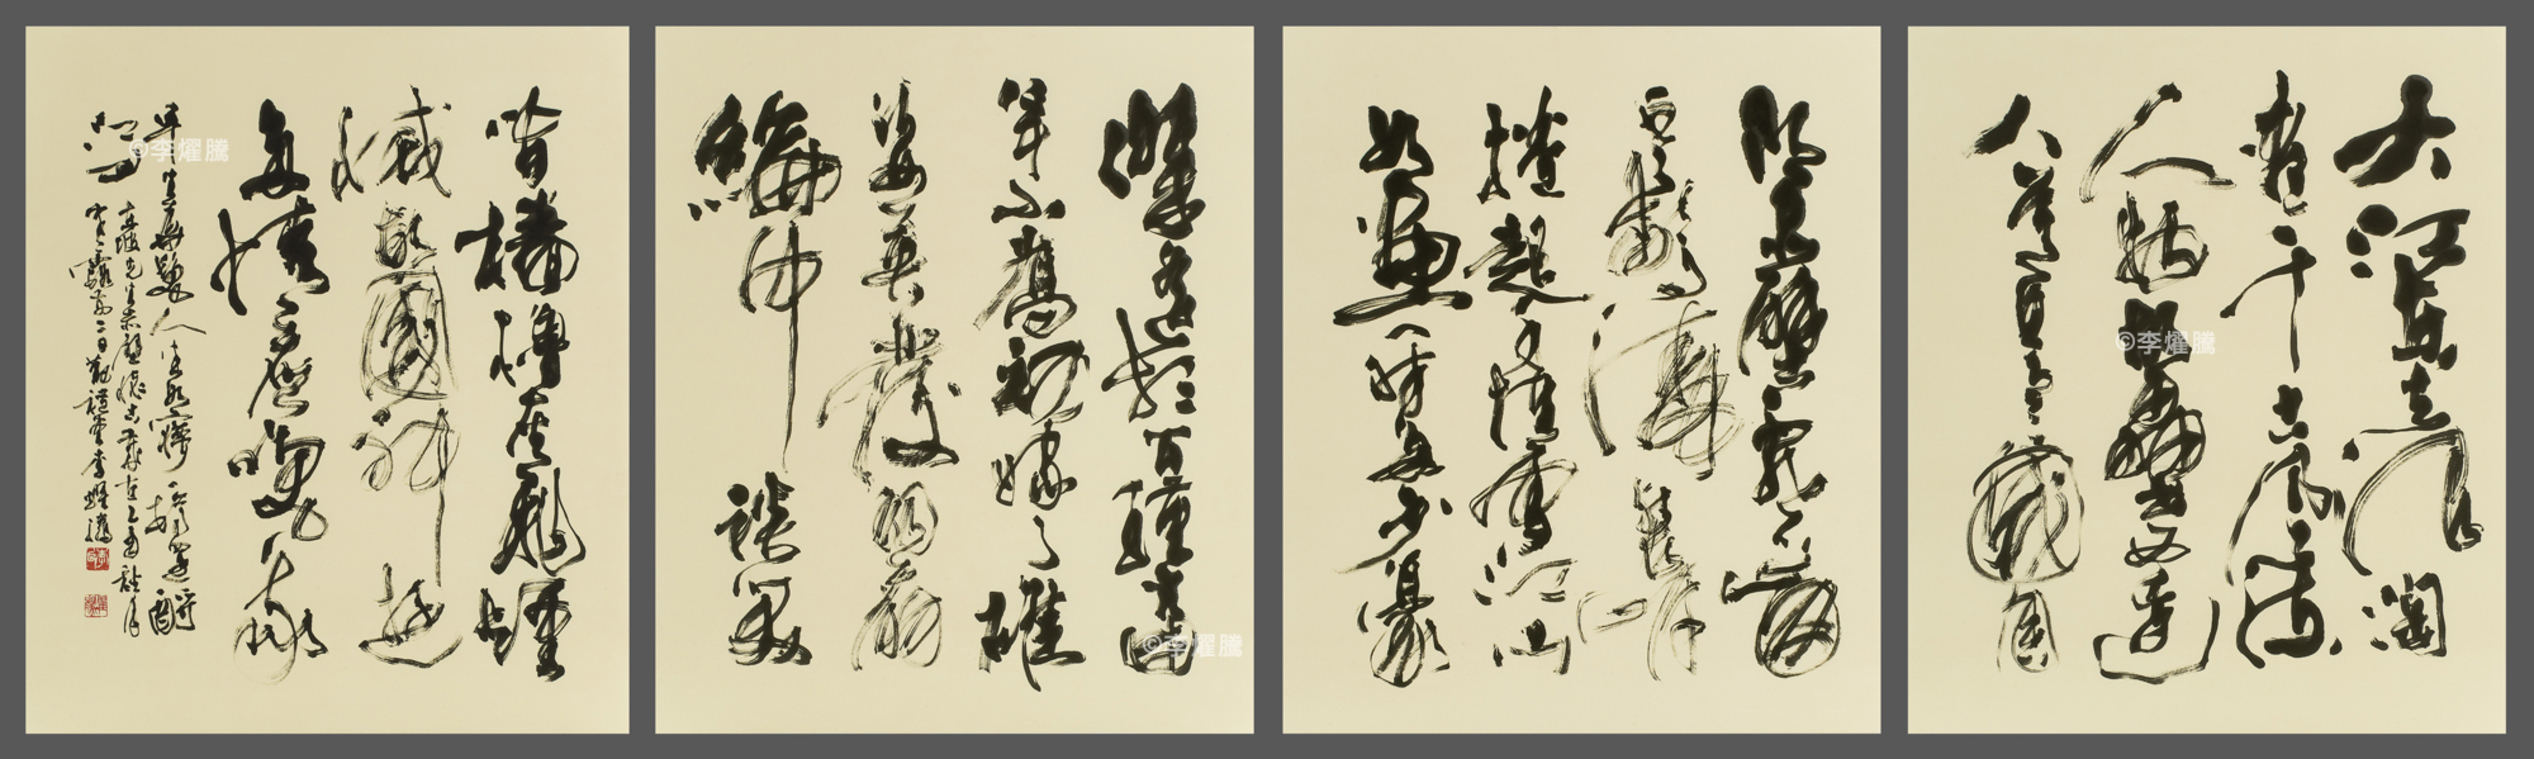 大江東去浪淘
盡千古風流
人物故壘西邊
人道是三國周
郎赤壁亂石崩
雲驚濤裂岸
捲起千堆雪江山
如畫一時多少豪
傑遙想公瑾當
年小喬初嫁了雄
姿英發羽扇
綸巾談笑
間檣櫓灰飛煙
滅故國神遊
多情應笑我
早生華髮人生如夢一樽還酹
江月
東坡先生赤壁懷古歲在乙酉秋月
寒露前二日 禮堂李燿騰
©李燿騰
©李燿騰
©李燿騰